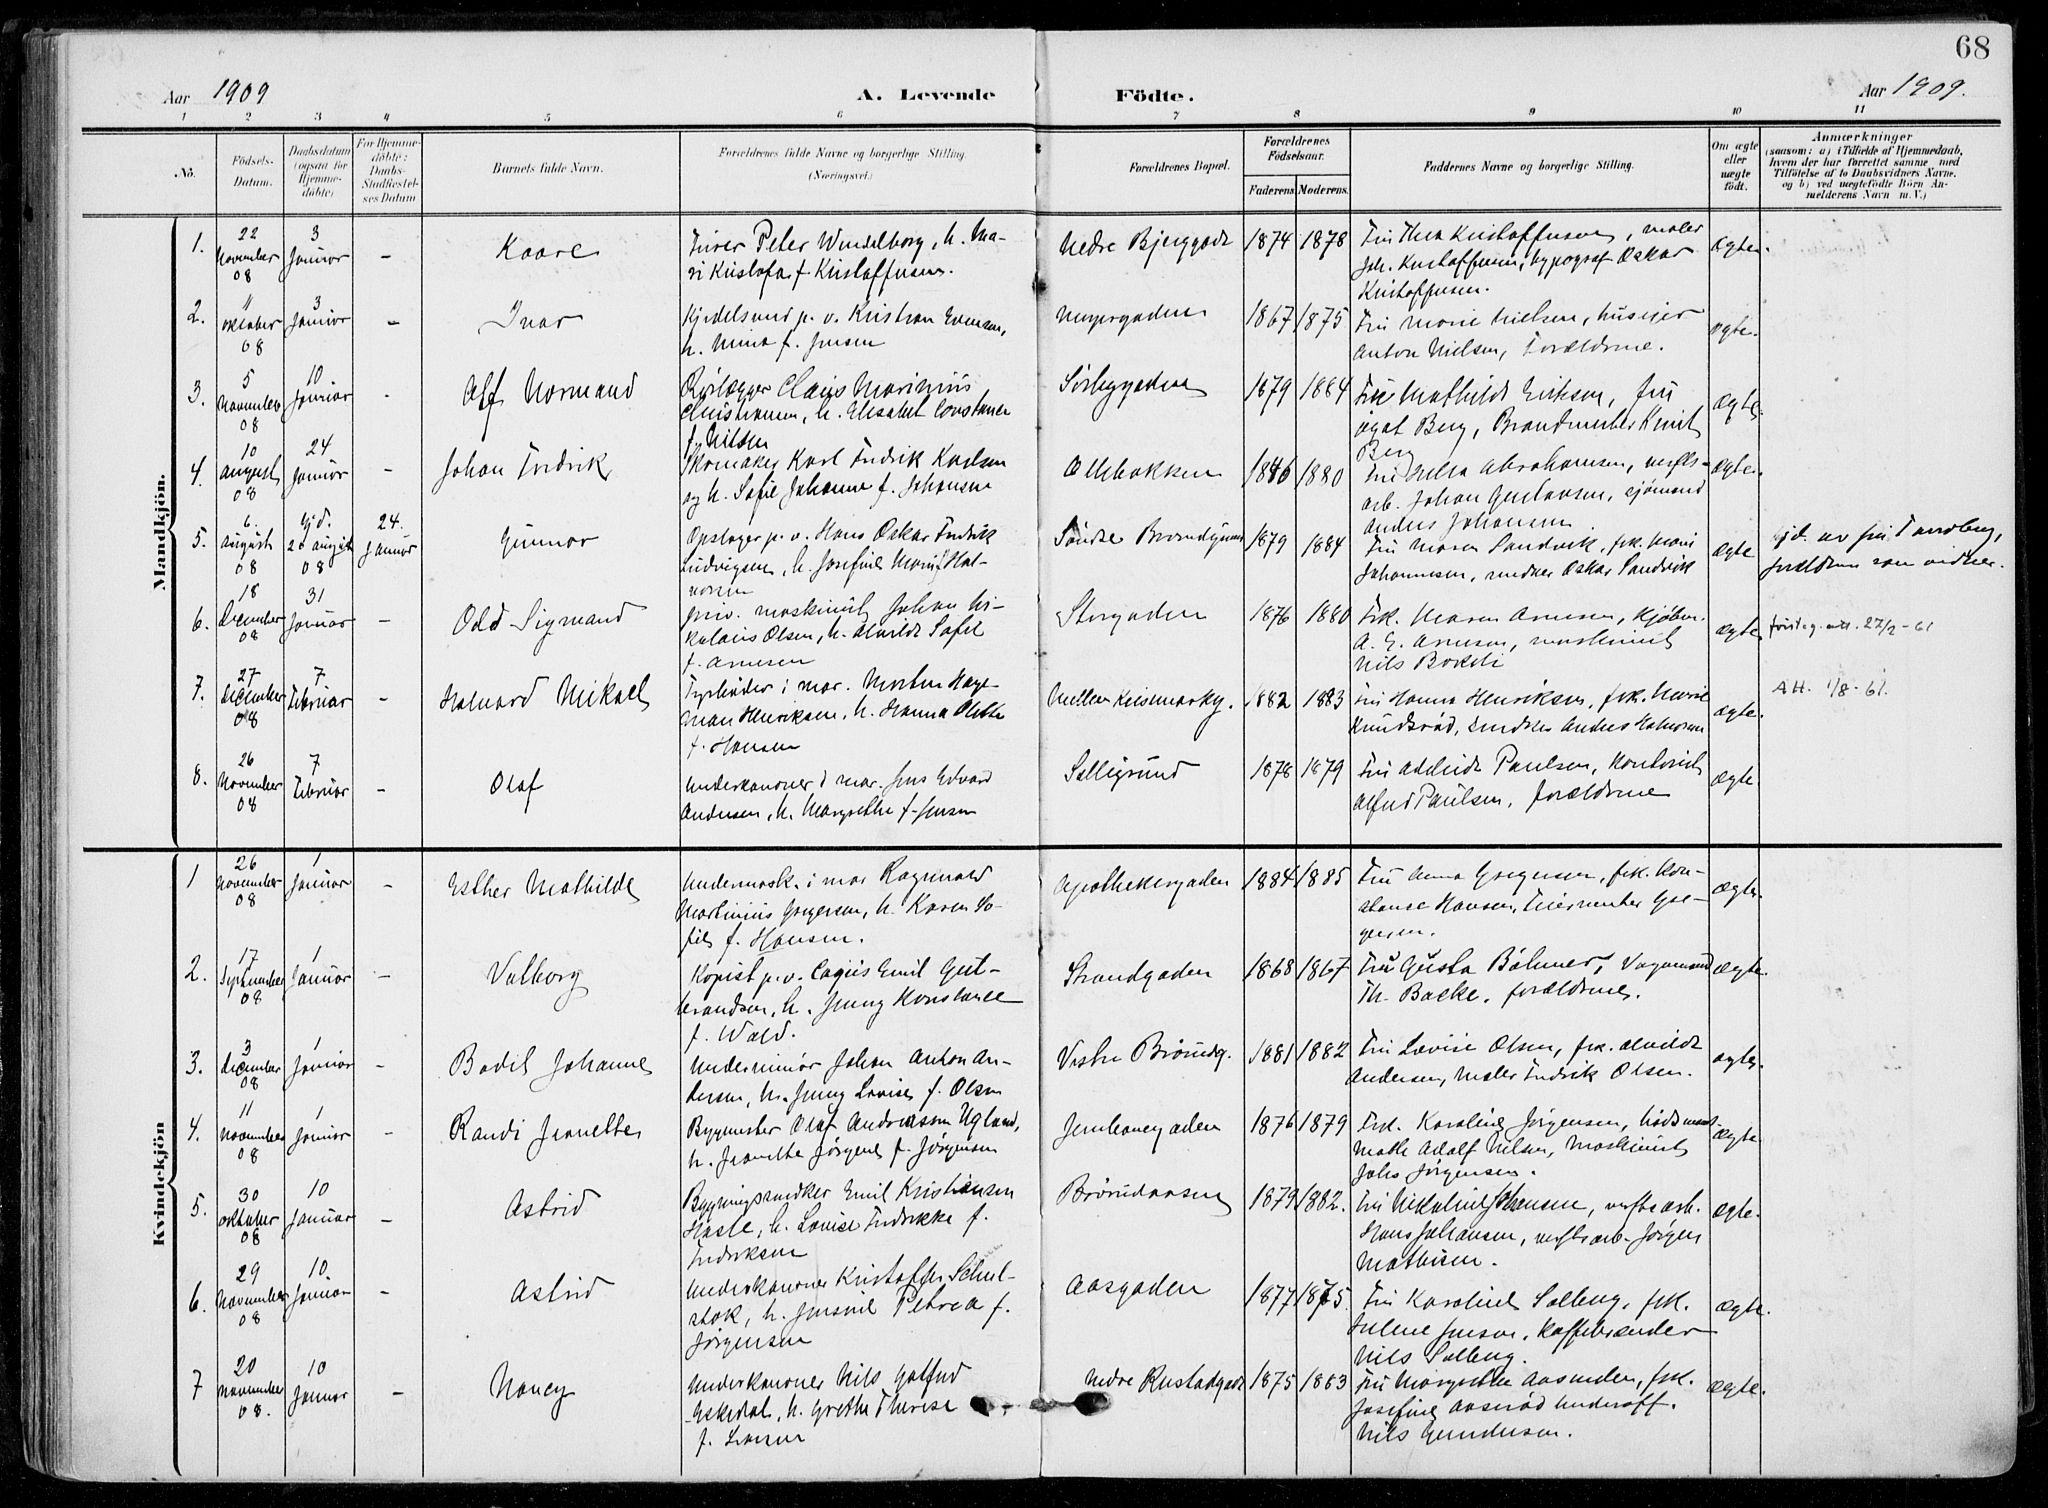 68
Aar 1909
A. Levende Födte.
Aar 1909.
1 2 3 4 5 6 7 8 9 10 11
No.
Födsels-Datum.
Daabsdatum (ogsaa for Hjemmedöbte)
For Hjemmedöbte: Daabs-Stadfæstelses Datum
Barnets fulde Navn.
Forældrenes fulde Navne og borgerlige Stilling.
(Næringsvei.)
Forældrenes Bopæl.
Forældrenes Födselsaar.
Faderens. Moderens.
Faddernes Navne og borgerlige Stilling.
Om ægte eller uægte födt.
Anmærkninger
(saasom: a) i Tilfælde af Hjemmedaab,
hvem der har forrettet samme, med
Tilföielse af to Daabsvidners Navne,
og b) ved uægtefödte Börn Anmelderens Navn m. V.)
Mandkjön.
1. 22 november 08
3 januar
-
Kaare
Peter Wendelborg, h. Mari Kristofa f. Kristoffersen.
Nedre Bjerggade
1874 1878
Fru Thea Kristoffersen, maler
Joh. Kristoffersen, typograf Oskar
Kristoffersen.
ægte.
2. 11 oktober 08
3 januar
-
Ivar
Kjedelsmed p. v. Kristian Evensen,
h. Mina f. Jensen
Meyergaden
1867 1875
Fru Marie Nielsen, huseier
Anton Nielsen, Forældrene.
ægte.
3. 5 november 08
10 januar
-
Alf Normand
Rörlægger Claus Marinius
Christiansen, h. Elisabet Constance
f. Nilsen
Sörbygaden
1879 1884
Frk Mathilde Eriksen, fru
Berg, Brandmester Knut
Berg
ægte.
4. 10 august 08
24 januar
-
Johan Fredrik
Skomaker Karl Fredrik Karlsen
og h. Sofie Johanne f. Johansen
Ollebakken
1846 1880
Abrahamsen, verfts-
arb. Johan Gustavsen, sjömand
Anders Johansen
ægte.
5. 6. august 08
hjd. august 08
24. januar
Gunnar
Opslager p. v. Hans Oskar Fredrik
Ludvigsen, h. Josefine Marie f. Hal-
vorsen
Söndre Brandgrunn
1879 1884
Fru Maren Sandvik, frk. Marie
Johannesen, snedker Oskar Sandvik
ægte
hjd. av fru Tandberg,
forældrene som vidner.
6. 18 december 08
31 januar
-
Odd Sigmand
priv. maskinist Johan Ni-
kolaus Olsen, h. Alvilde Sofie
f. Arnesen
Storgaden
1876 1880
Frk. Maren Arnesen, kjöbm.
A. E. Arnesen, maskinist
Nils Bakeli
ægte
27/2-61
7. 27 december 08
7 Februar
-
Halvard Mikael
Fyrböder i mar. Morten Hage-
man Henriksen, h. Hanna Olette
f. Hansen
Mellem Keismarkg.
1882 1883
Fru Hanna Henriksen, frk. Marie
Knudsröd, snedker Anders Halvorsen
ægte.
AH. 1/8-61.
8. 26 november 08
7 Februar
Olaf
Underkanoner i mar. Jens Edvard
Andersen, h. Margrethe f. Jensen
Selligrund
1878 1879
Fru Adelheide Paulsen, kontorist
Alfred Paulsen, forældrene
ægte.
Kvindekjön
1 26 november 08
1 januar
-
Esther Mathilde
Undermask. i mar Ragnvald
Martinius Gregersen, h. Karen So-
fie f. Hansen.
Apothekergaden
1884 1885
Fru Anna Gregersen, frk. Kon-
stanse Hansen, Feiermester Gre-
gersen.
ægte.
2. 17 september 08
1 januar
-
Valborg
Kopist p. v. Cajus Emil Gut-
brandsen, h. Jenny Konstance
f. Wold.
Strandgaden
1868 1867
Fru Gusta Böhmer, Vognmand
Th. Bakke, forældrene.
ægte.
3. 3 december 08
1 januar
-
Bodil Johanne
Underminör Johan Anton An-
dersen, h. Jenny Lovise f. Olsen
Vestre Bröndg.
1881 1882
Fru Lovise Olsen, frk. Alvilde
Andersen, Maler Fredrik Olsen.
ægte.
4. 11 november 08
1 januar
-
Randi Jeanette
Byggmester Olaf Andreassen Ugland,
h. Jeanette Jörgine f. Jörgensen
Jernbanegaden
1876 1879
Frk. Karoline Jörgensen,
Adolf Nilsen, Maskinist
Johs Jörgensen.
ægte
5. 30 oktober 08
10 januar
-
Astrid
Bygningssnedker Emil Kristiansen
Hasle, h. Lovise Fredrikke f.
Fredriksen
Bröndaasen
1879 1882.
Fru Nikoline Johansen, verftsarb.
Hans Johansen, verftsarb. Jörgen
Mathisen.
ægte.
6. 29 november 08
10 januar
-
Astrid
Underkanoner Kristoffer Schul-
stok, h. Jensine Petrea f.
Jörgensen
Aasgaden
1877 1875.
Fru Karoline Solberg, frk.
Helene Jensen, Kaffebrænder
Nils Solberg.
ægte.
7 20 november 08.
10 januar
-
Nancy
Underkanoner Nils Gotfred
Eskedal, h. Grethe Therese
f. Larsen
Nedre Rustadgade
1875 1883
Fru Margrethe Aasenden, frk.
Josefine Aaseröd Underoff.
Nils Gundersen.
ægte.